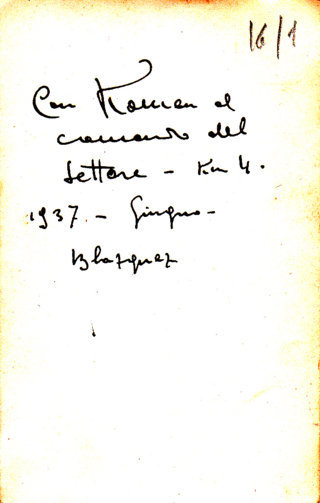 16/1
Con Roman al
comando del
settore - Km 4.
1937. - Giugno -
Blazquez